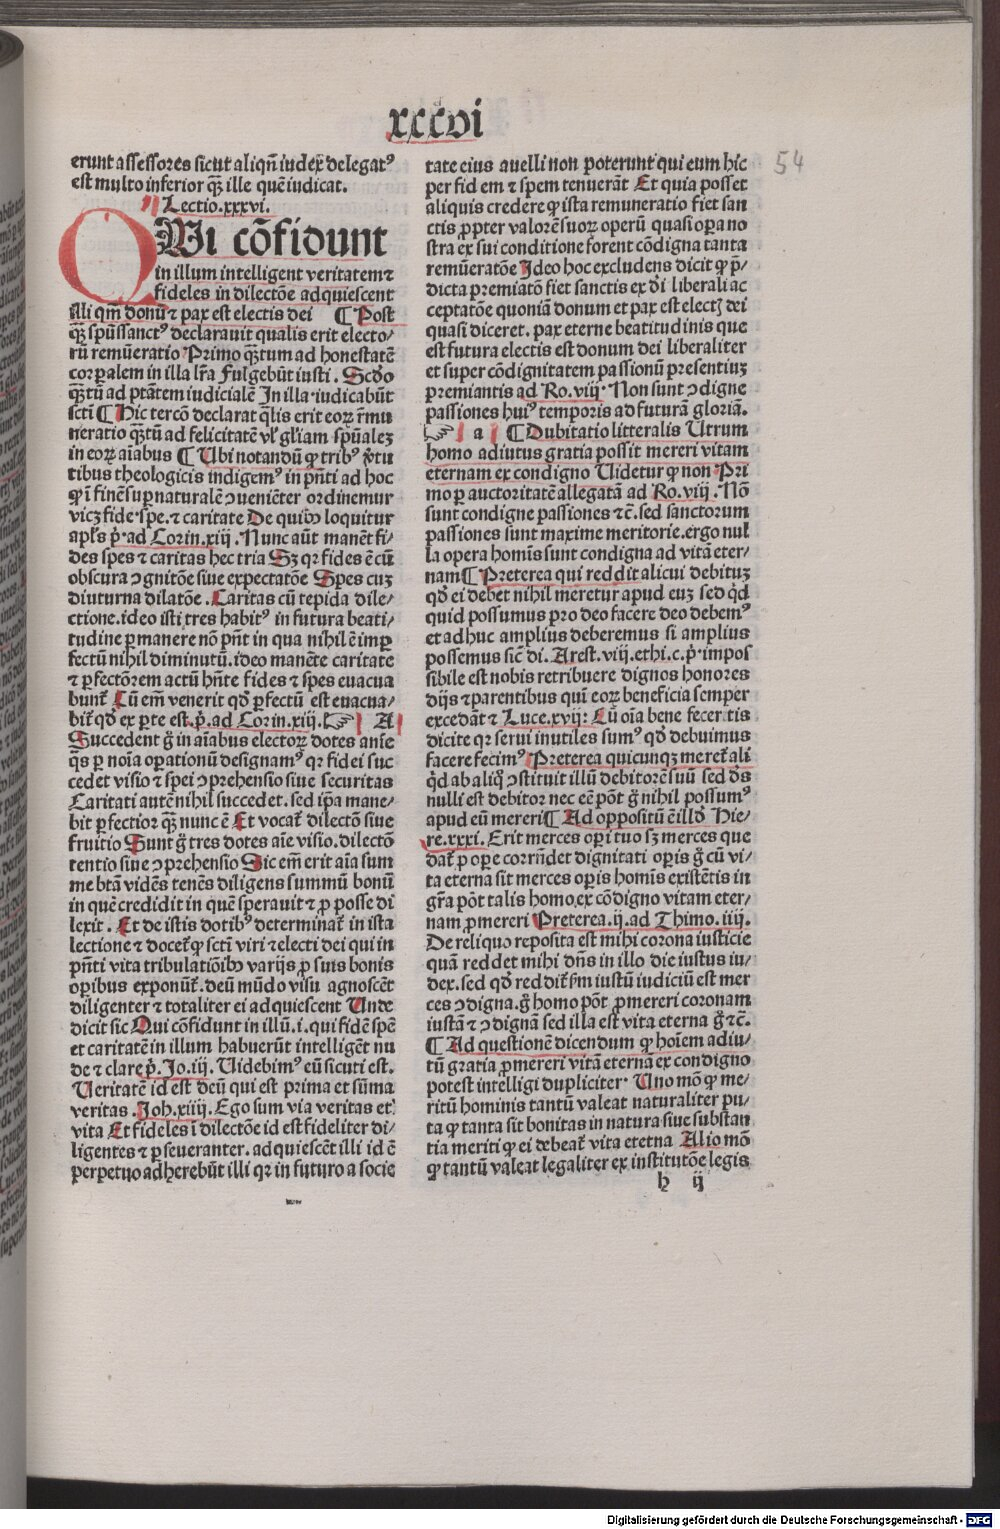 xxxvi
54
erunt assessores sicut aliqñ iudex delegatꝰ
est multo inferior qꝫ ille quē iudicat.
Lectio.xxxvi.
QWi cōfidunt
in illum intelligent veritatem ⁊
fideles in dilectōe adquiescent
illi qm̄ donū ⁊ pax est electis dei ¶ Post
qꝫ spūssanctꝰ declarauit qualis erit electo/
rū remūeratio Primo qꝫtum ad honestatē
corꝑalem in illa lr̄a Fulgebūt iusti. Scd̓o
qꝫtū ad ptātem iudicialē In illa iudicabūt
scti ¶ Hic tercō declarat q̄lis erit eoꝝ r̄mu
neratio qꝫtū ad felicitatē vl̓ gl̓iam spūalez
in eoꝝ aīabus ¶ Ubi notandū ꝙ tribꝰ v̓tu
tibus theologicis indigemꝰ in pn̄ti ad hoc
ꝙ ī finē suꝑnaturalē ↄueniēter ordinemur
vicꝫ fide.spe.⁊ caritate De quibꝰ loquitur
apl̓s p̓.ad Corin.xiij. Nunc aūt manēt fi/
des spes ⁊ caritas hec tria Sꝫ qꝛ fides ē cū
obscura ↄgnitōe siue expectatōe Spes cuꝫ
diuturna dilatōe .Caritas cū tepida dile/
ctione.ideo isti tres habitꝰ in futura beati/
tudine ꝑmanere nō pn̄t in qua nihil ē imꝑ
fectū nihil diminutū.ideo manēte caritate
⁊ ꝑfectōrem actū hn̄te fides ⁊ spes euacua
bunt̄ Cū em̄ venerit qd̓ ꝑfectū est euacua/
bit̄ qd̓ ex ꝑte est.p̓.ad Corin.xiij. ☞ A
Succedent g̊ in aīabus electoꝝ dotes aīe
q̄s ꝑ noīa oꝑationū designamꝰ qꝛ fidei suc
cedet visio ⁊ spei ↄprehensio siue securitas
Caritati autē nihil succedet.sed ip̄a mane/
bit ꝑfectior qꝫ nunc ē Et vocat̄ dilectō siue
fruitio Sunt g̊ tres dotes aīe visio.dilectō
tentio siue ↄprehensio Sic em̄ erit aīa sum
me btā vidēs tenēs diligens summū bonū
in quē credidit in quē sperauit ⁊ ꝓ posse di
lexit. Et de istis dotibꝰ determinat̄ in ista
lectione ⁊ docet̄ ꝙ scti viri ⁊ electi dei qui in
pn̄ti vita tribulatiōibꝰ varijs ꝓ suis bonis
oꝑibus exponūt̄.deū mūdo visu agnoscēt
diligenter ⁊ totaliter ei adquiescent Unde
dicit sic Qui cōfidunt in illū.i.qui fidē spē
et caritatē in illum habuerūt intelligēt nu
de ⁊ clare p̓.Jo.iij. Uidebimꝰ eū sicuti est.
Ueritatē id est deū qui est prima et sūma
veritas .Joh.xiiij. Ego sum via veritas et
vita Et fideles ī dilectōe id est fideliter di/
ligentes ⁊ ꝑseueranter.adquiescēt illi id ē
perpetuo adherebūt illi qꝛ in futuro a socie
tate eius auelli non poterunt qui eum hic
per fid em ⁊ spem tenuerāt Et quia posset
aliquis credere ꝙ ista remuneratio fiet san
ctis ꝓpter valorē suoꝝ operū quasi oꝑa no
stra ex sui conditione forent cōdigna tanta
remūeratōe Ideo hoc excludens dicit ꝙ p̄/
dicta premiatō fiet sanctis ex d̓i liberali ac
ceptatōe quoniā donum et pax est electꝭ dei
quasi diceret. pax eterne beatitudinis que
est futura electis est donum dei liberaliter
et super cōdignitatem passionū presentiuꝫ
premiantis ad Ro.viij. Non sunt ↄdigne
passiones huiꝰ temporis ad futurā gloriā.
☞ a ¶ Dubitatio litteralis Utrum
homo adiutus gratia possit mereri vitam
eternam ex condigno Uidetur ꝙ non Pri
mo ꝑ auctoritatē allegatā ad Ro.viij. Nō
sunt condigne passiones ⁊c̄.sed sanctorum
passiones sunt maxime meritorie.ergo nul
la opera homīs sunt condigna ad vitā eter/
nam ¶ Preterea qui reddit alicui debituꝫ
qd̓ ei debet nihil meretur apud euꝫ sed q̓d
quid possumus pro deo facere deo debemꝰ
et adhuc amplius deberemus si amplius
possemus sic̄ di. Arest.viij.ethi.c.p̓.impos
sibile est nobis retribuere dignos honores
dijs ⁊ parentibus quū eoꝝ beneficia semper
excedāt ⁊ Luce.xvij: Cū oīa bene feceritis
dicite qꝛ serui inutiles sumꝰ qd̓ debuimus
facere fecimꝰ Preterea quicunqꝫ meret̄ ali
q̓d ab aliq̊ ↄstituit illū debitorē suū sed dꝰs
nulli est debitor nec eē pōt g̊ nihil possumꝰ
apud eū mereri ¶ Ad oppositū ē illd̓ Hie/
re.xxxi. Erit merces oꝑi tuo sꝫ merces que
dat̄ ꝓ oꝑe corrn̄det dignitati oꝑis g̊ cū vi/
ta eterna sit merces oꝑis homīs existētis in
gr̄a pōt talis homo.ex cōdigno vitam eter/
nam ꝓmereri Preterea.ij.ad Thimo.iiij.
De reliquo reposita est mihi corona iusticie
quā reddet mihi dn̄s in illo die iustus iu/
dex.sed qd̓ reddit̄ s̄m iustū iudiciū est mer
ces ↄdigna.g̊ homo pōt ꝓmereri coronam
iustā ⁊ ↄdignā sed illa est vita eterna g̊ ⁊c̄.
¶ Ad questionē dicendum ꝙ hoīem adiu/
tū gratia ꝓmereri vitā eternā ex condigno
potest intelligi dupliciter. Uno mō ꝙ me/
ritū hominis tantū valeat naturaliter pu/
ta ꝙ tanta sit bonitas in natura siue substan
tia meriti ꝙ ei debeat̄ vita etetna Alio mō
ꝙ tantū valeat legaliter ex institutōe legis
h ij
Digitalisierung gefördert durch die Deutsche Forschungsgemeinschaft - DFG